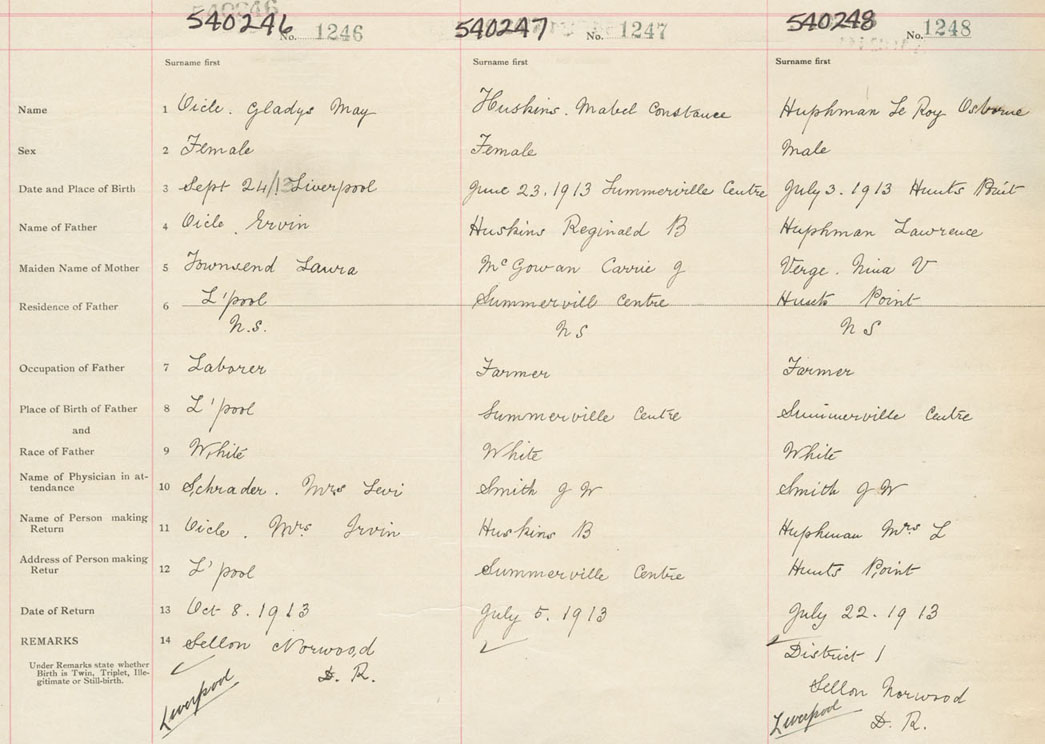 540246 No. 1246 540247 No. 1247 540248 No. 1248
Surname first Surname first Surname first
Name 1 Oicle. Gladys May Huskins. Mabel Constance Huphman Le Roy Osborne
Sex 2 Female Female Male
Date and Place of Birth 3 Sept 24/13 Liverpool June 23. 1913 Summerville Centre July 3. 1913 Hunts Point
Name of Father 4 Oicle. Ervin Huskins Reginald B Huphman Lawrence
Maiden Name of Mother 5 Townsend Laura McGowan Carrie J Verge. Nina V
Residence of Father 6 L'pool Summervill Centre Hunts Point
N.S. N S N S
Occupation of Father 7 Laborer Farmer Farmer
Place of Birth of Father 8 L'pool Summerville Centre Summerville Centre
and
Race of Father 9 White White White
Name of Physician in at-
tendance 10 Schrader. Mrs Levi Smith J W Smith J W
Name of Person making
Return 11 Oicle. Mrs. Irvin Huskins B Huphman Mrs L
Address of Person making
Retur 12 L'pool Summerville Centre Hunts Point
Date of Return 13 Oct 8. 1913 July 5. 1913 July 22. 1913
REMARKS 14 Sellon Norwood District 1
Under Remarks state whether
Birth is Twin, Triplet, Ille-
gitimate or Still-birth.
D. R. Sellon Norwood
Liverpool Liverpool D. R.